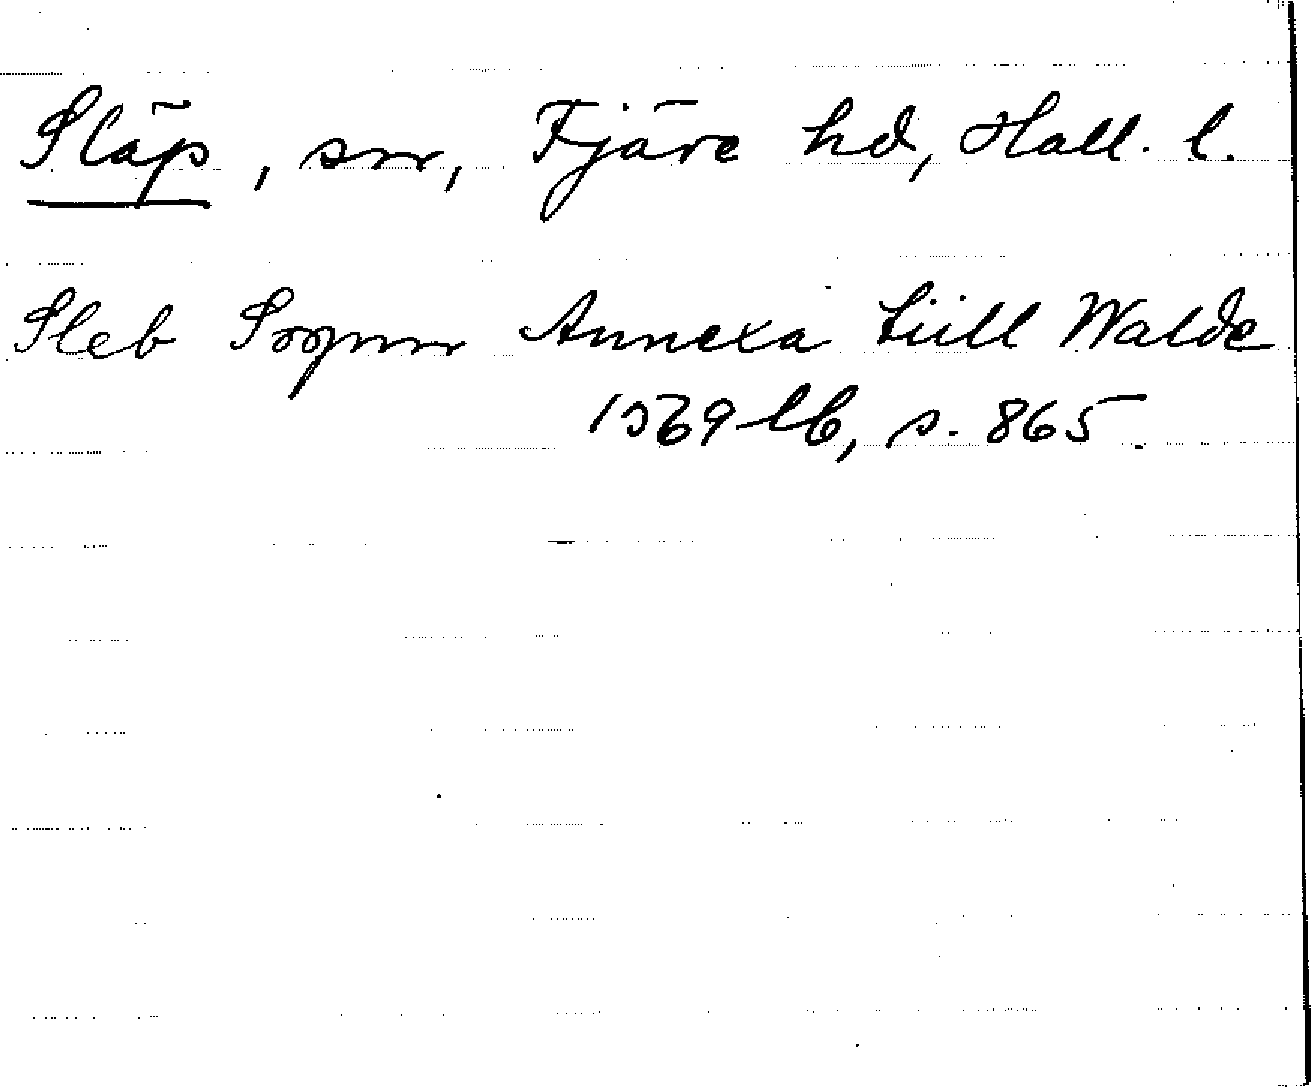 Släp, sn, Fjäre hd, Hall. l.
Sleb Sognn Annexa tiill Walde
1569 lb, s. 865